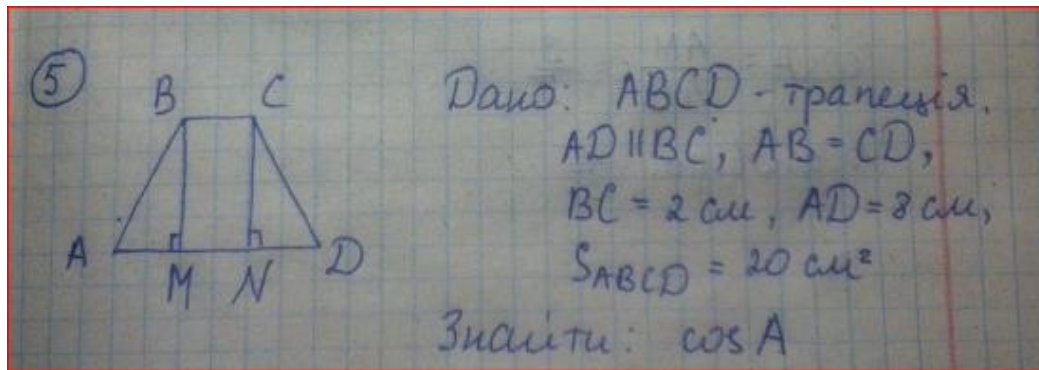 5
B C
A D
M N
Дано: ABCD - трапеція.
AD || BC, AB = CD,
BC = 2 см, AD = 8 см,
S_ABCD = 20 см²
Знайти: cos A